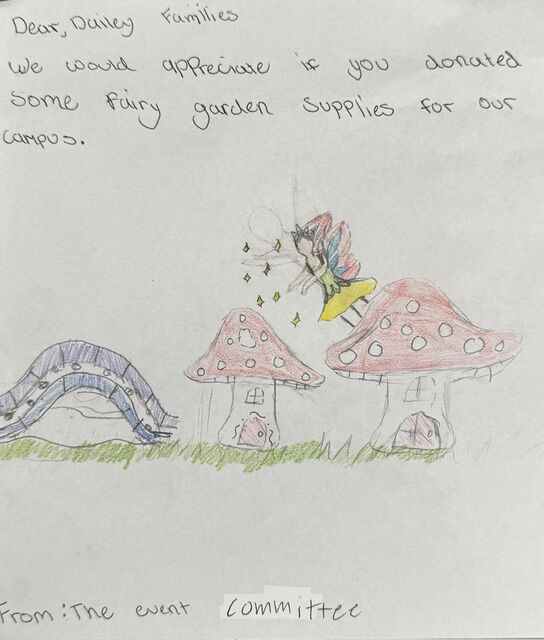 Dear, Dailey Families
We would appreciate if you donated
some fairy garden supplies for our
campus.
From: The event committee